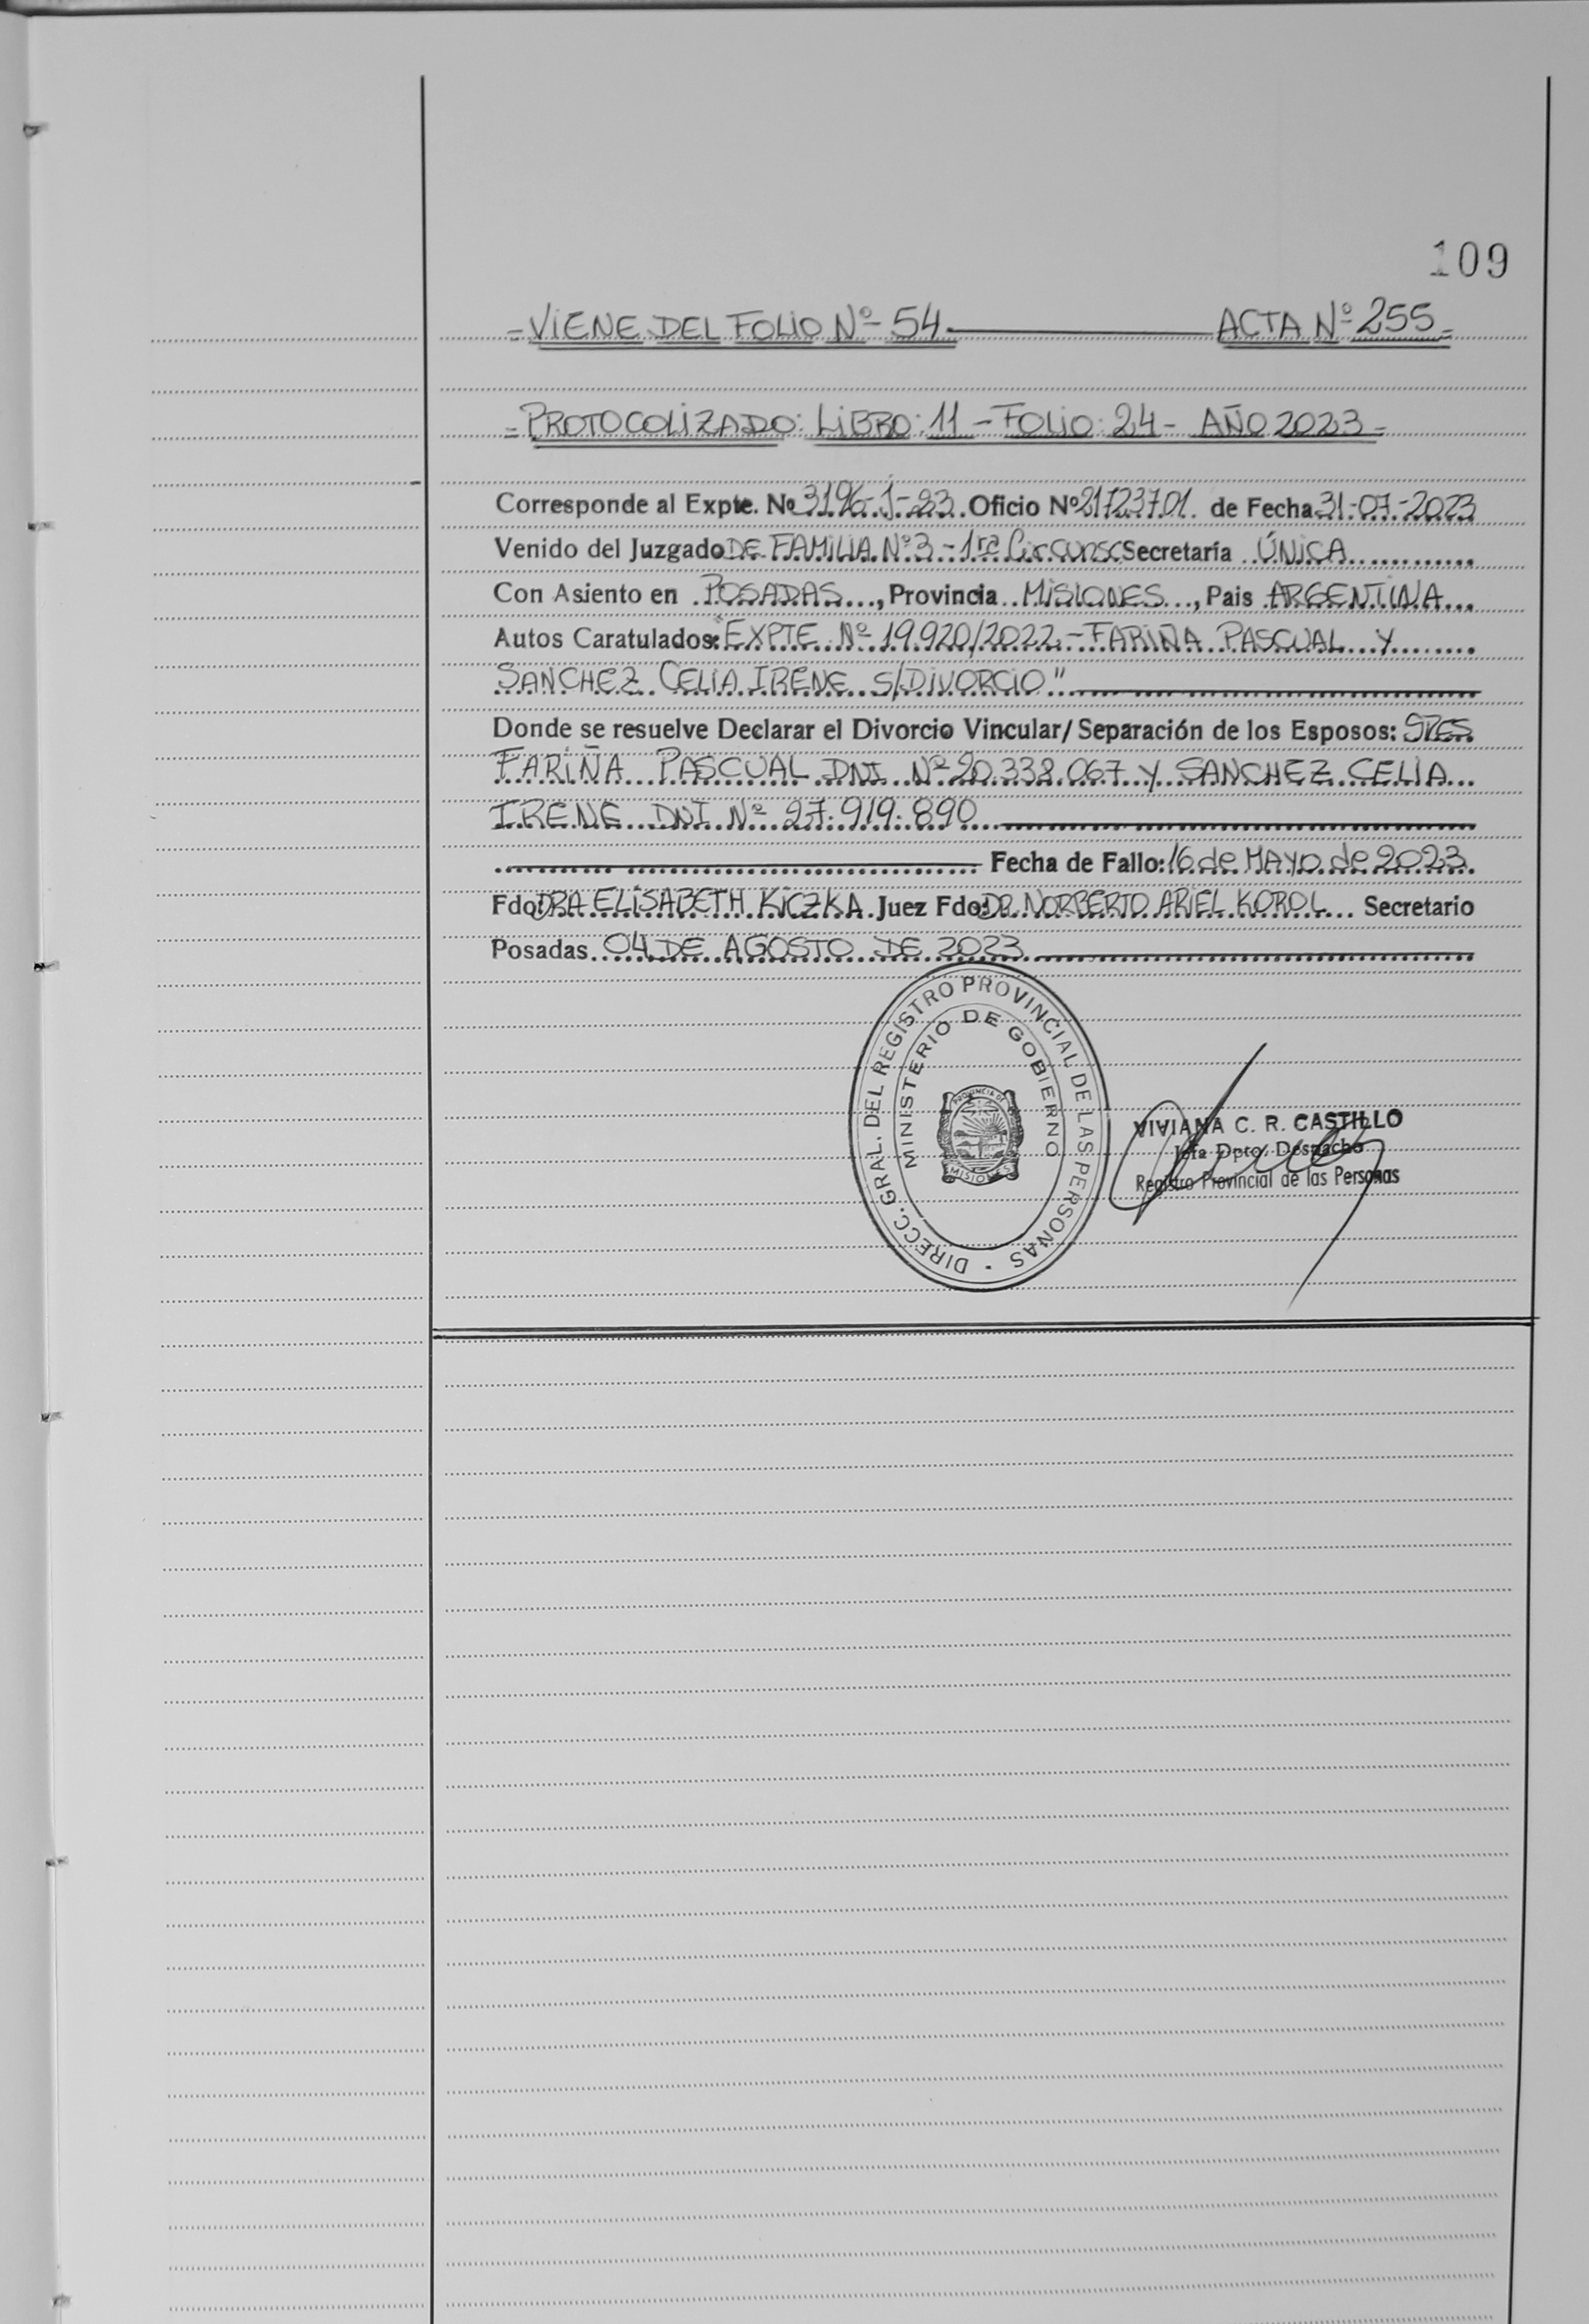 109
=VIENE DEL FOLIO Nº 54 ACTA Nº 255=
=PROTOCOLIZADO: LIBRO: 11 - FOLIO: 24 - AÑO 2023=
Corresponde al Expte. Nº 3196-J-23. Oficio Nº 21723701. de Fecha 31-07-2023
Venido del Juzgado DE FAMILIA Nº 3 - 1ra Circunsc Secretaría ÚNICA
Con Asiento en POSADAS, Provincia MISIONES, Pais ARGENTINA
Autos Caratulados: "EXPTE Nº 19.920/2022 - FARIÑA PASCUAL Y
SANCHEZ CELIA IRENE S/DIVORCIO"
Donde se resuelve Declarar el Divorcio Vincular/ Separación de los Esposos: SRES
FARIÑA PASCUAL DNI Nº 20.338.067 Y SANCHEZ CELIA
IRENE DNI Nº 27.919.890
Fecha de Fallo: 16 de MAYO de 2023.
Fdo: DRA ELISABETH KICZKA. Juez Fdo: DR. NORBERTO ARIEL KOROL Secretario
Posadas 04 DE AGOSTO DE 2023
DIRECC. GRAL. DEL REGISTRO PROVINCIAL DE LAS PERSONAS
MINISTERIO DE GOBIERNO
PROVINCIA DE
MISIONES
VIVIANA C. R. CASTILLO
Jefa Dpto. Despacho
Registro Provincial de las Personas